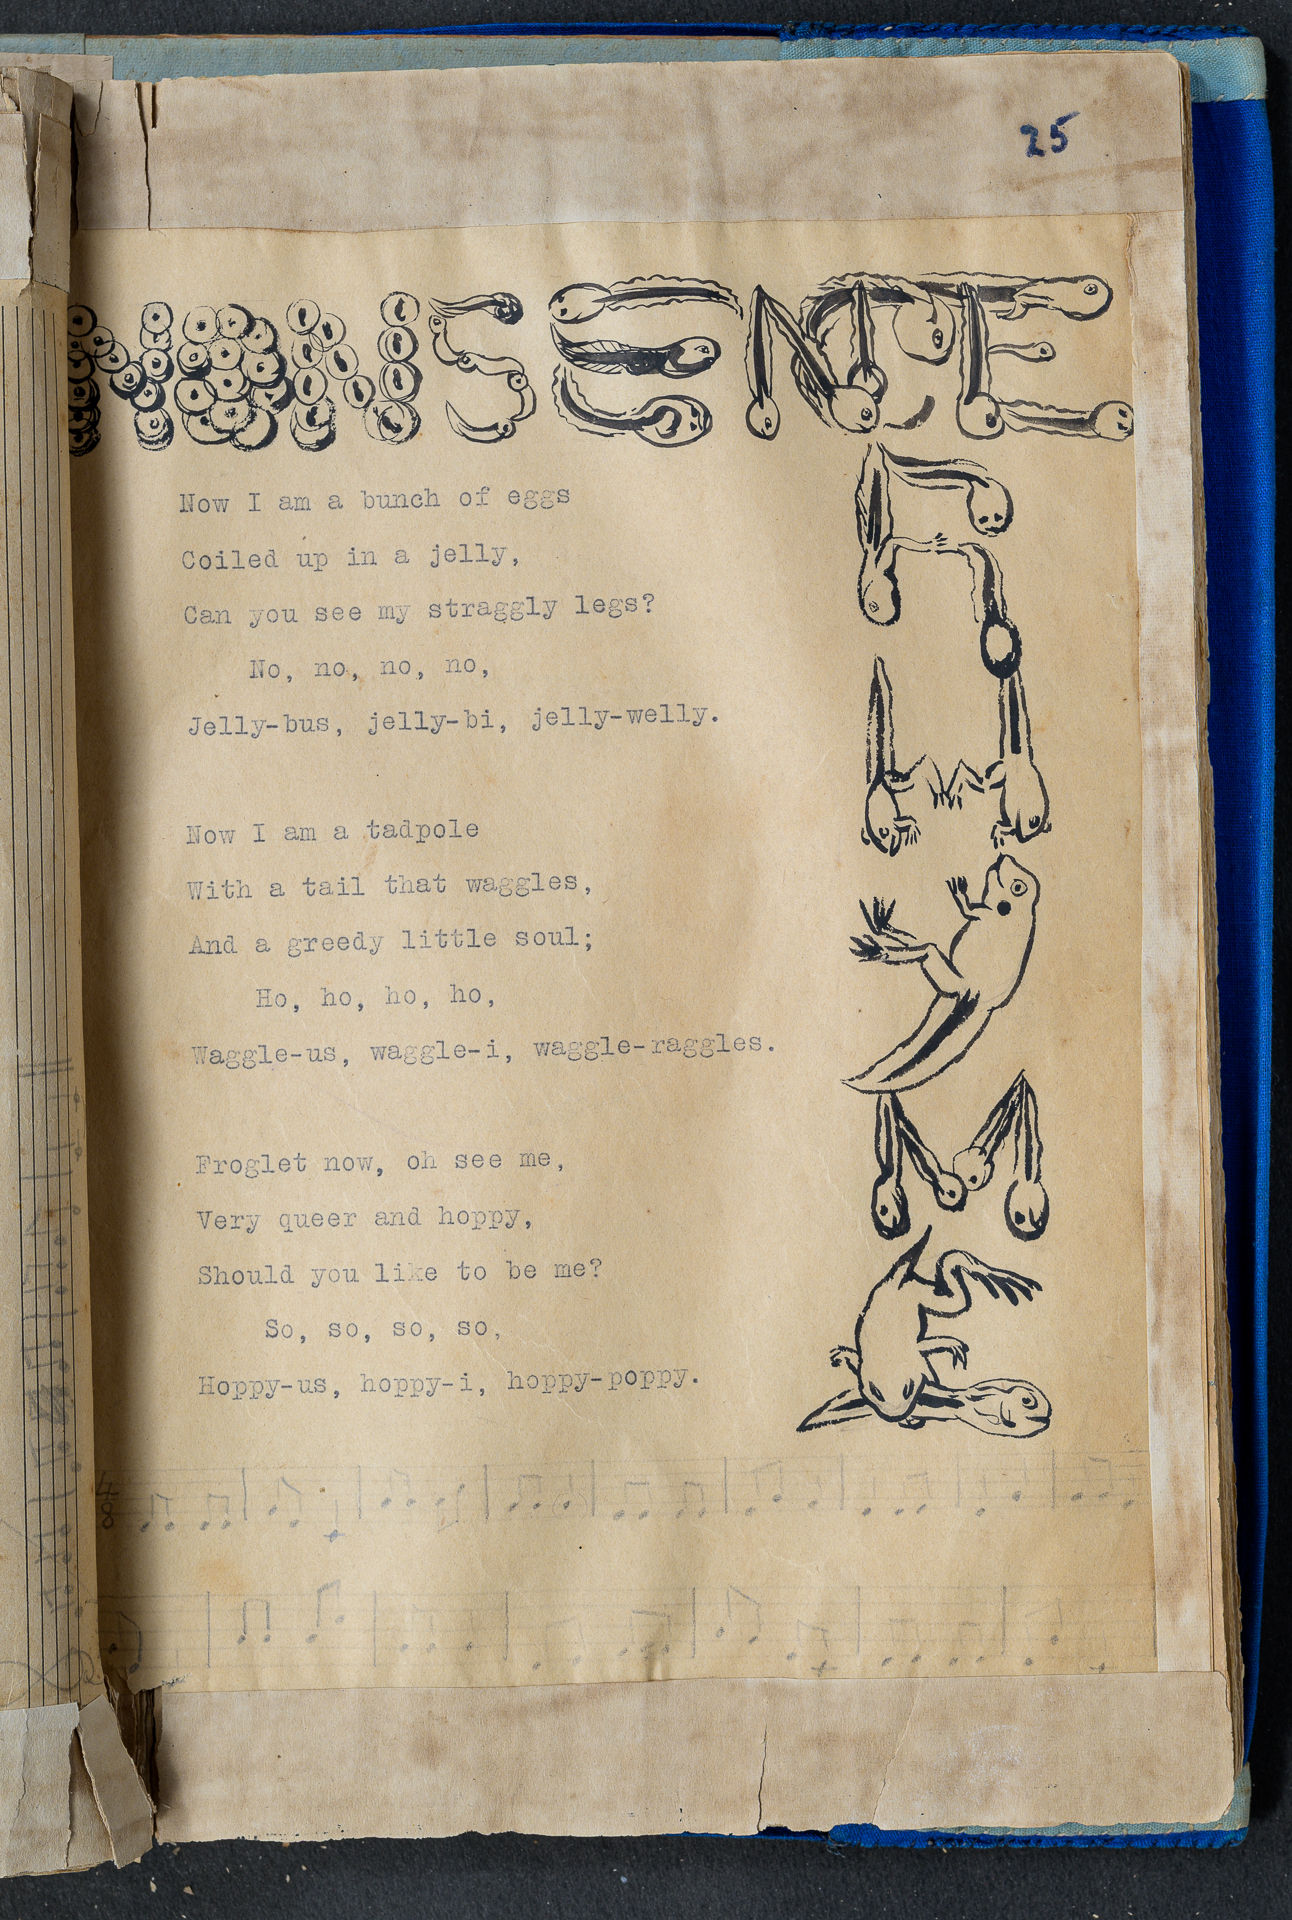 25
NONSENSE
RHYME
Now I am a bunch of eggs
Coiled up in a jelly,
Can you see my straggly legs?
No, no, no, no,
Jelly-bus, jelly-bi, jelly-welly.
Now I am a tadpole
With a tail that waggles,
And a greedy little soul;
Ho, ho, ho, ho,
Waggle-us, waggle-i, waggle-raggles.
Froglet now, oh see me,
Very queer and hoppy,
Should you like to be me?
So, so, so, so,
Hoppy-us, hoppy-i, hoppy-poppy.
4
8